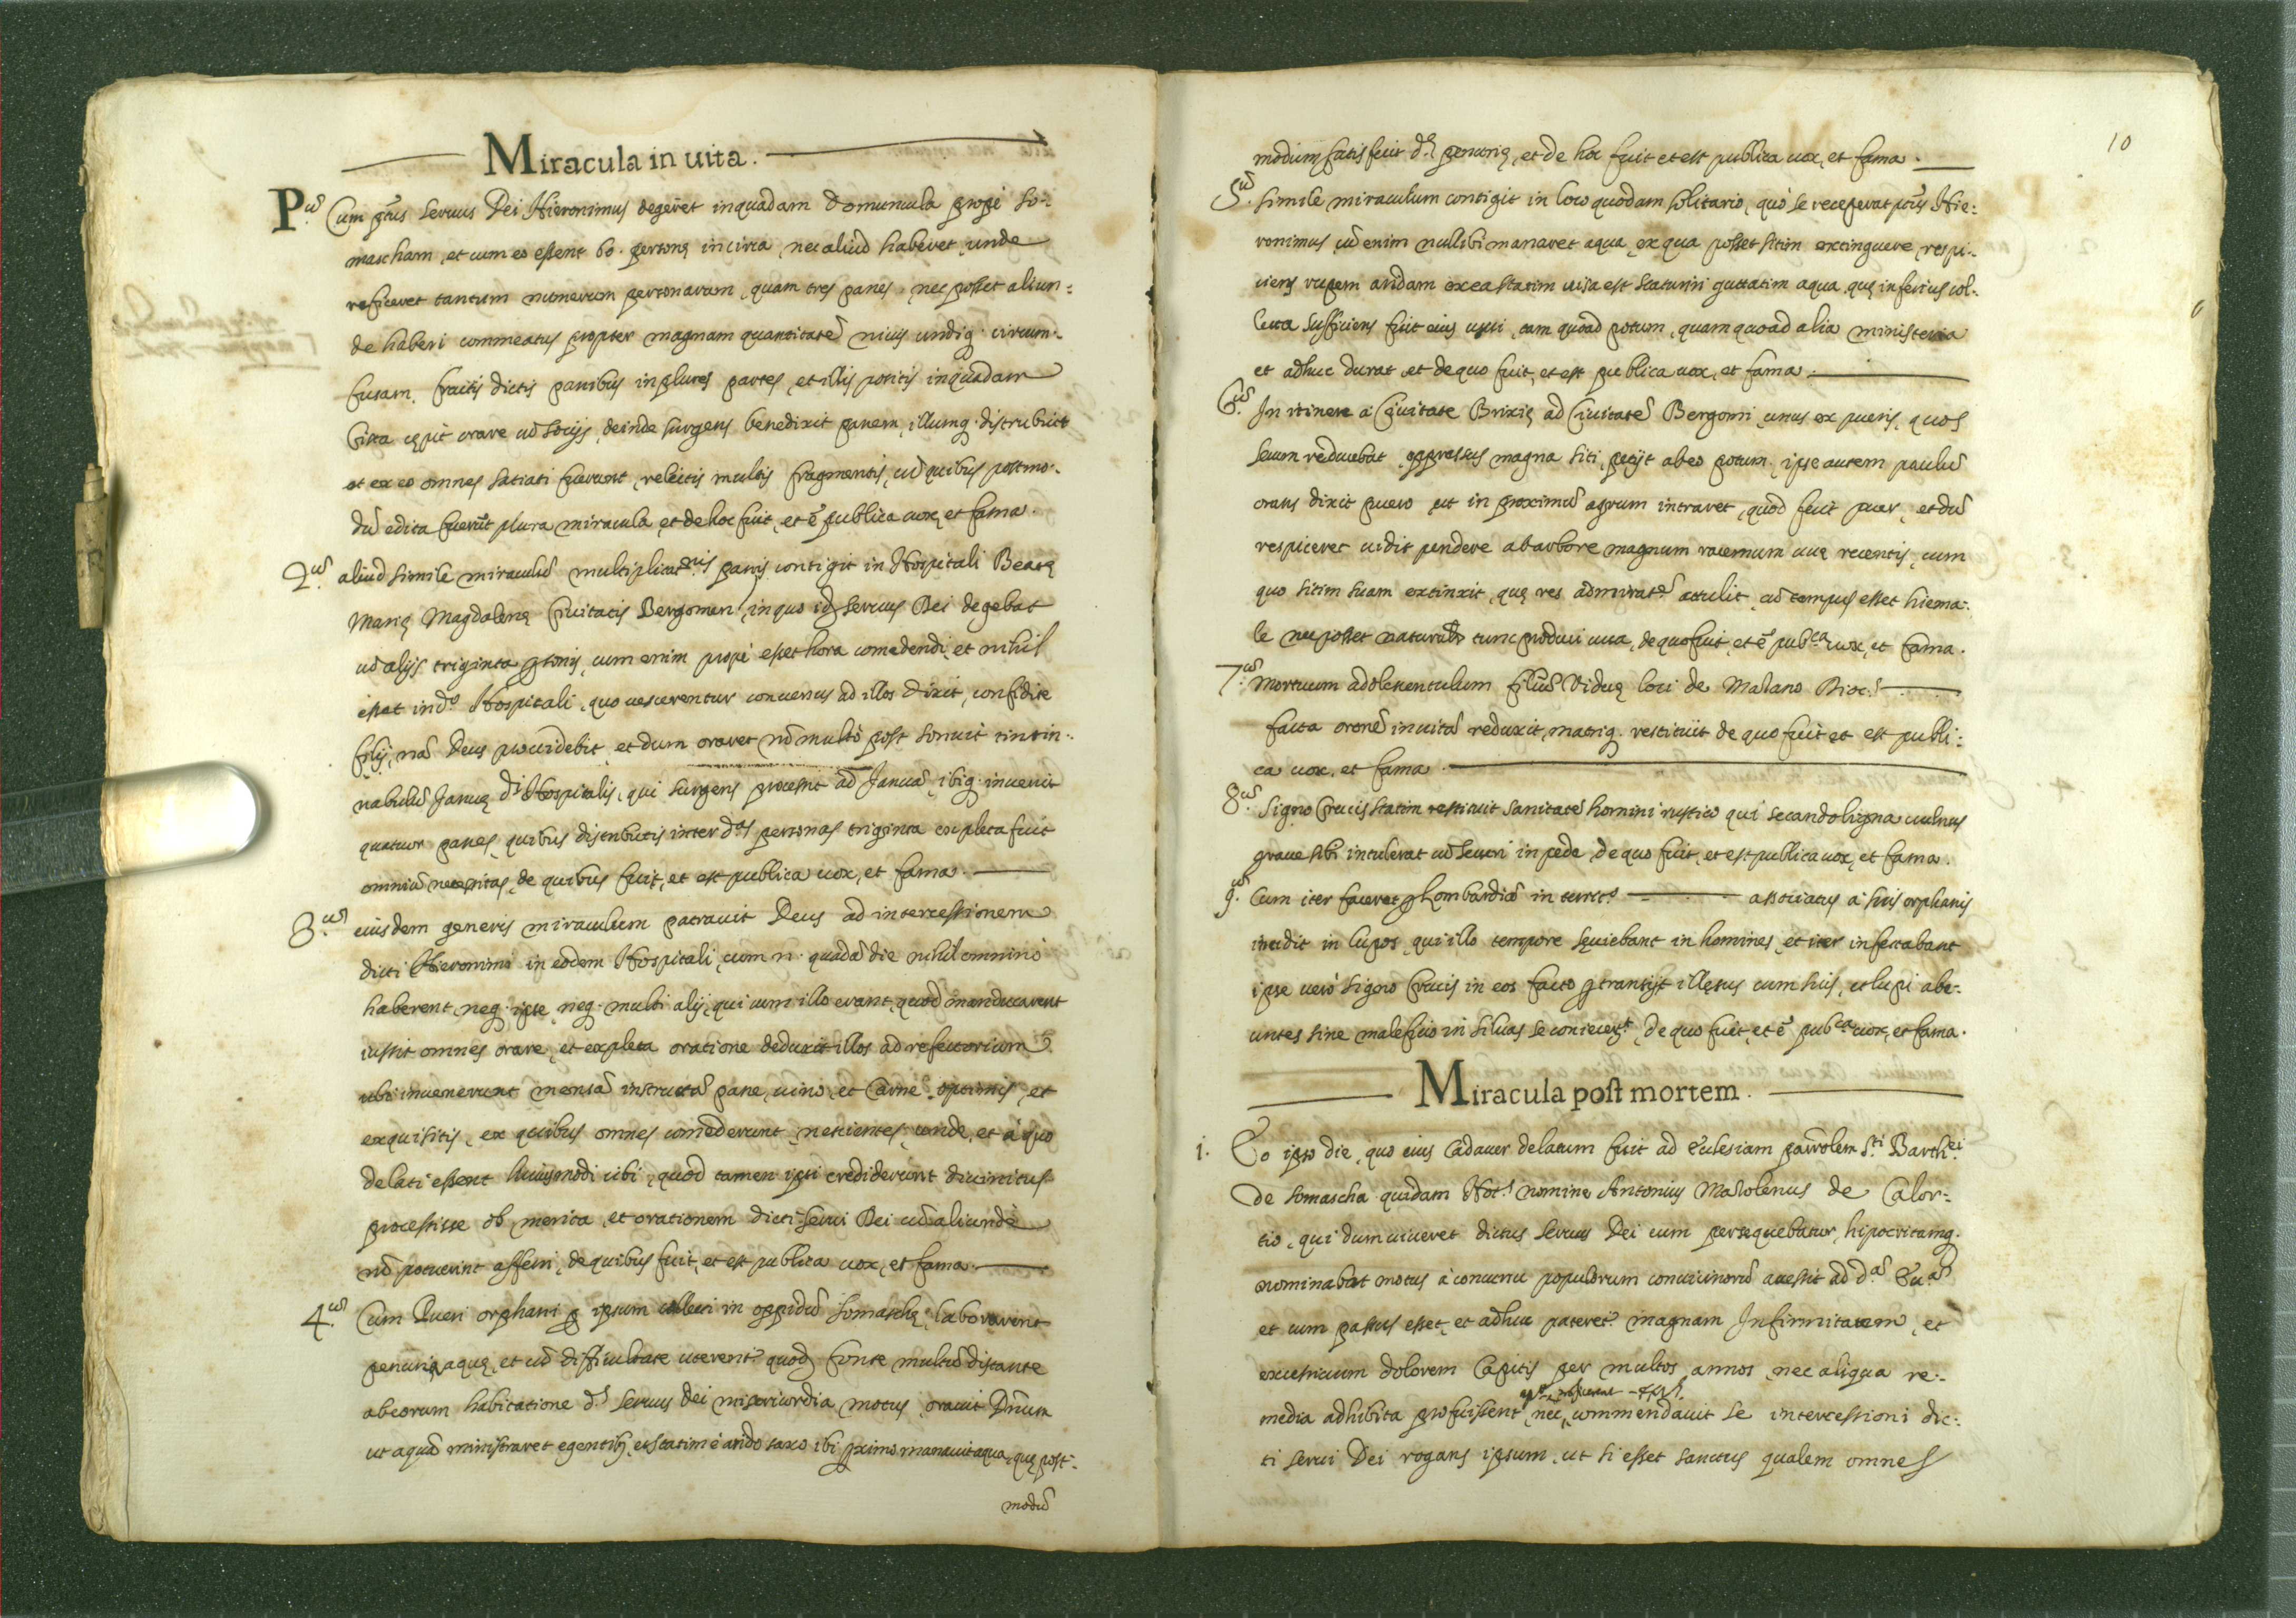 Miracula in uita.
P.us Cum p̃tus seruus Dei Hieronimus degeret in quadam Domuncula propè So-
mascham, et cum eo essent 60. personę incirca, nec aliud haberet, unde
reficeret tantum numerum personarum, quam tres panes, nec posset aliun:
de haberi commeatus propter magnam quantitatẽ niuis undiq. circum-
fusam, fractis dictis panibus in plures partes, et illis positis in quadam
Cista cępit orare cũ socijs, deinde surgens benedixit panem, illumq. distribuit
et ex eo omnes satiati fuerunt, relictis multis fragmentis, cũ quibus postmo-
dũ edita fuerũt plura miracula, et de hoc fuit, et ẽ publica uox, et fama.
2.us aliud simile miraculũ multiplicat.nis panis contigit in Hospitali Beatę
Marię Magdalenę Ciuitatis Bergomen, in quo id. seruus Dei degebat
cũ alijs triginta psonis, cum enim propè esset hora comedendi, et nihil
esset in d.o Hospitali, quo uescerentur conuersus ad illos dixit, confidite
filij, nã Deus prouidebit, et dum oraret nõ multò post sonuit tintin-
nabulũ Januę d.i Hospitalis, qui surgens processit ad Januã, ibiq. inuenit
quatuor panes, quibus distributis inter d.as personas triginta expleta fuit
omniũ necessitas, de quibus fuit, et est publica uox, et fama.
3.us eiusdem generis miraculum patrauit Deus ad intercessionem
dicti Hieronimi in eodem Hospitali, cum n. quadã die nihil omninò
haberent, neq. ipse, neq. multi alij, qui cum illo erant, quod manducarent
iussit omnes orare, et expleta oratione deduxit illos ad refectorium
ubi inuenerunt mensã instructã pane, uino, et Carne optimis, et
exquisitis, ex quibus omnes comederunt, nescientes, unde, et à quo
delati essent huiusmodi cibi, quod tamen ipsi crediderunt diuinitus
processisse ob merita, et orationem dicti serui Dei cũ aliundè
nõ potuerint afferri, de quibus fuit, et est publica uox, et fama.
4.us Cum Pueri orphani p ipsum collecti in oppidũ Somaschę laborarent
penuria aquę, et cũ difficultate uterent.r quod, fonte multũ distante
ab eorum habitatione d.s seruus dei misericordia motus, orauit Dñum
ut aquã ministraret egentib., et statim è arido saxo ibi proximo manauit aqua, quę post-
modũ
10
modum satis fecit d.ę penurię, et de hoc fuit et est publica uox, et fama.
5.us simile miraculum contigit in loco quodam solitario, quò se receperat p̃tus Hie:
ronimus, cũ enim nullibi manaret aqua, ex qua posset sitim extinguere, respi-
ciens rupem aridam ex ea statim uisa est scaturiri guttatim aqua, quę inferius col-
lecta sufficiens fuit eius usui, tam quoad potum, quam quoad alia ministeria
et adhuc durat, et de quo fuit, et est publica uox, et fama.
6.us In itinere à Ciuitate Brixię ad Ciuitatẽ Bergomi, unus ex pueris, quos
secum reducebat, oppressus magna siti, petijt ab eo potum, ipse autem paulũ
orans dixit puero ut in proximũ agrum intraret, quod fecit puer, et dũ
respiceret uidit pendere ab arbore magnum racemum uuę recentis, cum
quo sitim suam extinxit, quę res admirat.ẽ attulit, cũ tempus esset hiema:
le nec posset tunc produci uua, de quo fuit, et ẽ pub.ca uox, et fama.
7.us mortuum adolescentulum filiũ Viduę loci de Malano Dioc.s
facta oronẽ in uitã reduxit, matriq. restituit de quo fuit et est publi:
ca uox, et fama.
8.us signo Crucis statim restituit sanitatẽ homini rustico qui secando ligna uulnus
graue sibi intulerat cũ securi in pede, de quo fuit, et est publica uox, et fama.
9.us Cum iter faceret p Lombardiã in associatus à suis orphanis
incidit in lupos, qui illo tempore sęuiebant in homines, et iter infestabant
ipse uerò signo Crucis in eos facto ptransijt illęsus cum suis, et lupi abe-
untes sine maleficio in siluas se coniecer.t, de quo fuit, et ẽ pub.ca uox, et fama.
Miracula post mortem.
1. Eo ipso die, quo eius cadauer delatum fuit ad Ecclesiam paro͂lem S.ti Barth.ei
de Somascha quidam nomine Antonius Mazolenus de Calol-
tio, qui dum uiueret dictus seruus Dei eum persequebatur, hipocritamq.
nominabat motus à concursu populorum conuicinorũ accessit ad d.am Eccl.am
et cum passus esset, et adhuc pateret.r magnam Infirmitatem, et
excessiuum dolorem Capitis per multos annos, nec aliqua re:
media adhibita profuissent, nec, commendauit se intercessioni dic:
ti serui Dei rogans ipsum, ut si esset sanctus qualem omnes